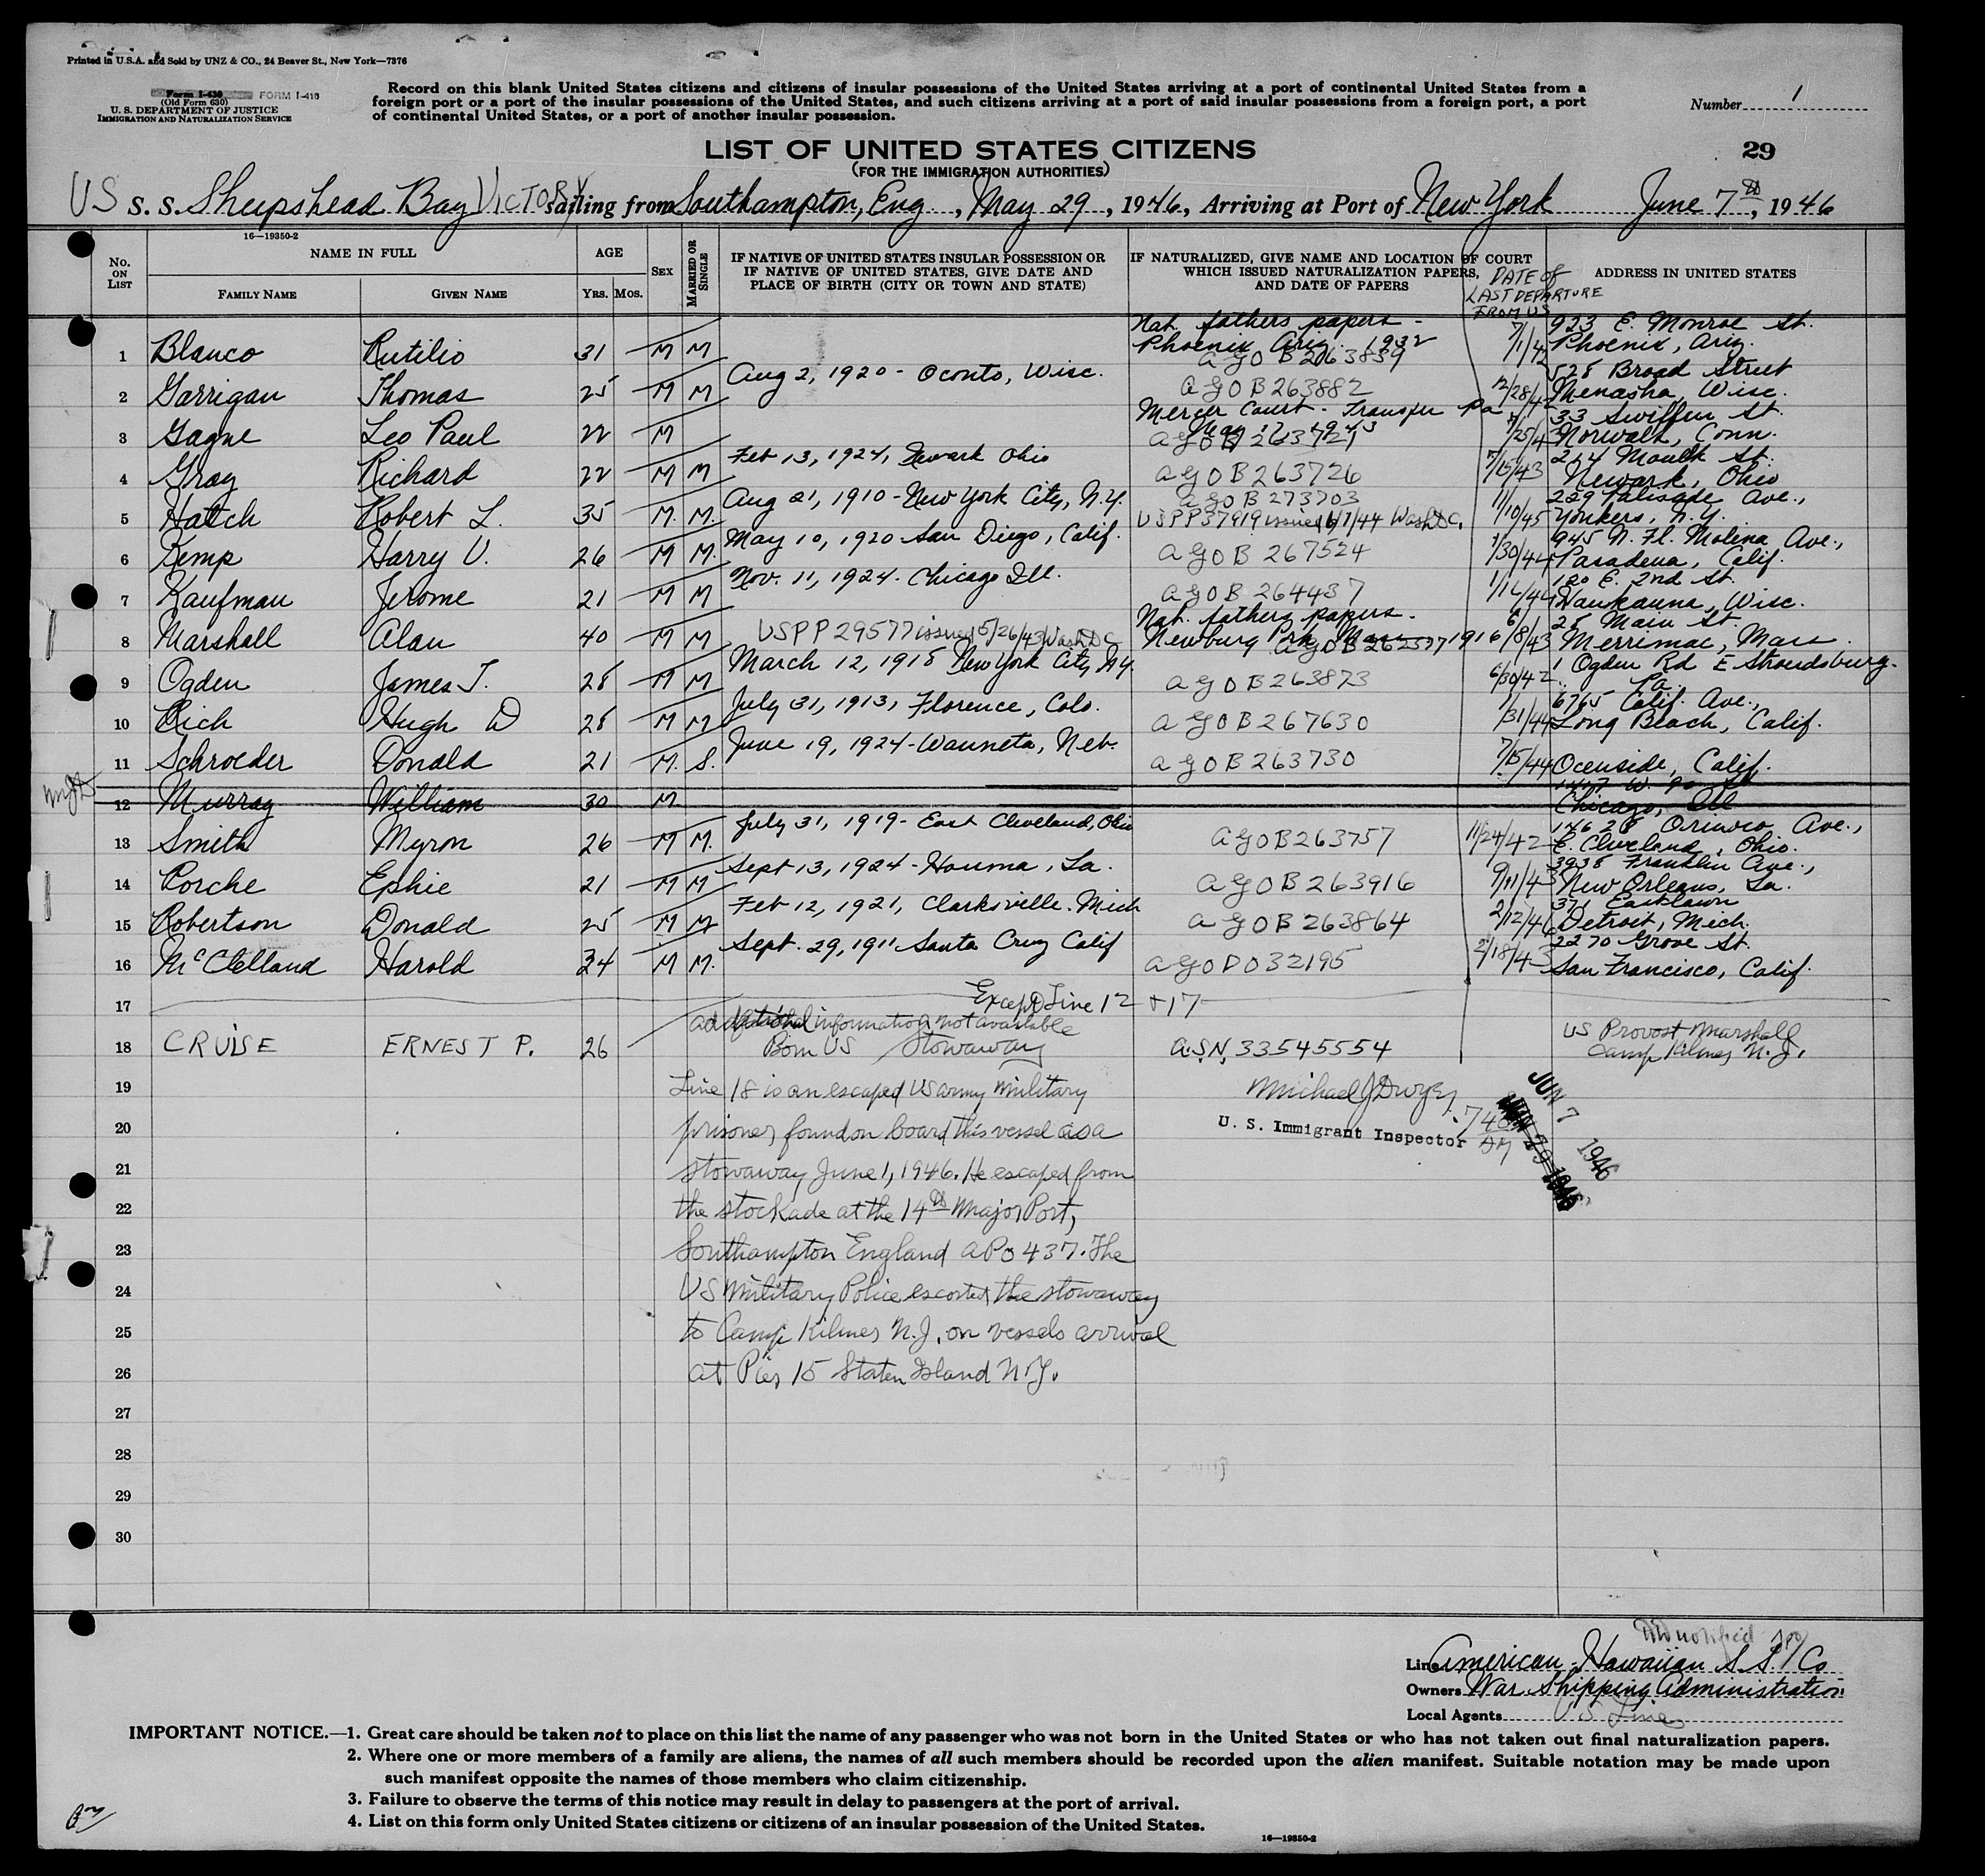 Printed in U.S.A. and Sold by UNZ & CO., 24 Beaver St., New York—7376
Form I-430 FORM I-418
(Old Form 630)
U. S. DEPARTMENT OF JUSTICE
IMMIGRATION AND NATURALIZATION SERVICE
Record on this blank United States citizens and citizens of insular possessions of the United States arriving at a port of continental United States from a
foreign port or a port of the insular possessions of the United States, and such citizens arriving at a port of said insular possessions from a foreign port, a port
of continental United States, or a port of another insular possession.
Number 1
LIST OF UNITED STATES CITIZENS
(FOR THE IMMIGRATION AUTHORITIES)
29
US S. S. Sheepshead Bay VICTORY sailing from Southampton, Eng., May 29, 1946, Arriving at Port of New York June 7th, 1946
16—19350-2
No. ON LIST
NAME IN FULL
FAMILY NAME
GIVEN NAME
AGE
YRS. MOS.
SEX
MARRIED OR SINGLE
IF NATIVE OF UNITED STATES INSULAR POSSESSION OR
IF NATIVE OF UNITED STATES, GIVE DATE AND
PLACE OF BIRTH (CITY OR TOWN AND STATE)
IF NATURALIZED, GIVE NAME AND LOCATION OF COURT
WHICH ISSUED NATURALIZATION PAPERS,
AND DATE OF PAPERS
DATE OF
LAST DEPARTURE
FROM US
ADDRESS IN UNITED STATES
1 Blanco Rutilio 31 M M Nat. fathers papers - Phoenix Ariz. 1932 AGO B 263839 7/1/42 923 E. Monroe St. Phoenix, Ariz.
2 Garrigan Thomas 25 M M Aug 2, 1920 - Oconto, Wisc. AGO B 263882 12/28/42 528 Broad Street Menasha, Wisc.
3 Gagne Leo Paul 22 M Mercer Court - Transfer Pa May 17, 1943 AGO B 263721 33 Swiffen St. Norwalk, Conn.
4 Gray Richard 22 M M Feb 13, 1924, Newark Ohio AGO B 263726 7/15/43 Newark, Ohio
5 Hatch Robert L. 35 M. M. Aug 21, 1910 - New York City, N.Y. AGO B 273703 USPP37919 issued 6/7/44 Wash DC. 11/10/45 229 Palisade Ave., Yonkers, N.Y.
6 Kemp Harry V. 26 M M. May 10, 1920 San Diego, Calif. AGO B 267524 1/30/44 945 N. El. Molina Ave., Pasadena, Calif.
7 Kaufman Jerome 21 M M Nov. 11, 1924 - Chicago Ill. AGO B 264437 120 E. 2nd St. Kaukauna, Wisc.
8 Marshall Alan 40 M M USPP 29577 issued 5/26/43 Wash DC Nat. fathers papers. Newburg Prt, Mass 1916 AGO B 262577 6/8/43 28 Main St. Merrimac, Mass.
9 Ogden James T. 28 M M March 12, 1918 New York City, N.Y. AGO B 263873 6/30/42 1 Ogden Rd E Stroudsburg. Pa.
10 Rich Hugh D 28 M M July 31, 1913, Florence, Colo. AGO B 267630 1/31/44 6765 Calif. Ave., Long Beach, Calif.
11 Schroeder Donald 21 M. S. June 19, 1924 - Wauneta, Neb. AGO B 263730 7/15/44 Ocenside, Calif.
12 Murray William 30 M Chicago, Ill
13 Smith Myron 26 M M. July 31, 1919 - East Cleveland, Ohio AGO B 263757 11/24/42 14628 Orinoco Ave., E. Cleveland, Ohio.
14 Porche Ephie 21 M M Sept 13, 1924 - Houma, La. AGO B 263916 9/11/43 3938 Franklin Ave., New Orleans, La.
15 Robertson Donald 25 M M Feb 12, 1921, Clarksville. Mich AGO B 263864 2/12/46 371 Eastlawn Detroit, Mich.
16 McClelland Harold 34 M M. Sept. 29, 1911 Santa Cruz Calif AGO D 032195 2/18/43 2270 Grove St. San Francisco, Calif.
17 Except Line 12 + 17
additional information not available
18 CRUISE ERNEST P. 26 Born US Stowaway A.S.N. 33545554 US Provost Marshall Camp Kilmer N.J.
19 Line 18 is an escaped US army military
20 prisoner found on board this vessel as a
21 stowaway June 1, 1946. He escaped from
22 the stockade at the 14th Major Port,
23 Southampton England APO 437. The
24 US Military Police escorted the stowaway
25 to Camp Kilmer N.J. on vessels arrival
26 at Pier 15 Staten Island N.Y.
27
28
29
30
Michael J Dwyer
U. S. Immigrant Inspector
740 AM
JUN 7 1946
Line American-Hawaiian S.S. Co
Owners War Shipping Administration
Local Agents U S Lines
IMPORTANT NOTICE.—1. Great care should be taken not to place on this list the name of any passenger who was not born in the United States or who has not taken out final naturalization papers.
2. Where one or more members of a family are aliens, the names of all such members should be recorded upon the alien manifest. Suitable notation may be made upon
such manifest opposite the names of those members who claim citizenship.
3. Failure to observe the terms of this notice may result in delay to passengers at the port of arrival.
4. List on this form only United States citizens or citizens of an insular possession of the United States.
16—19350-2